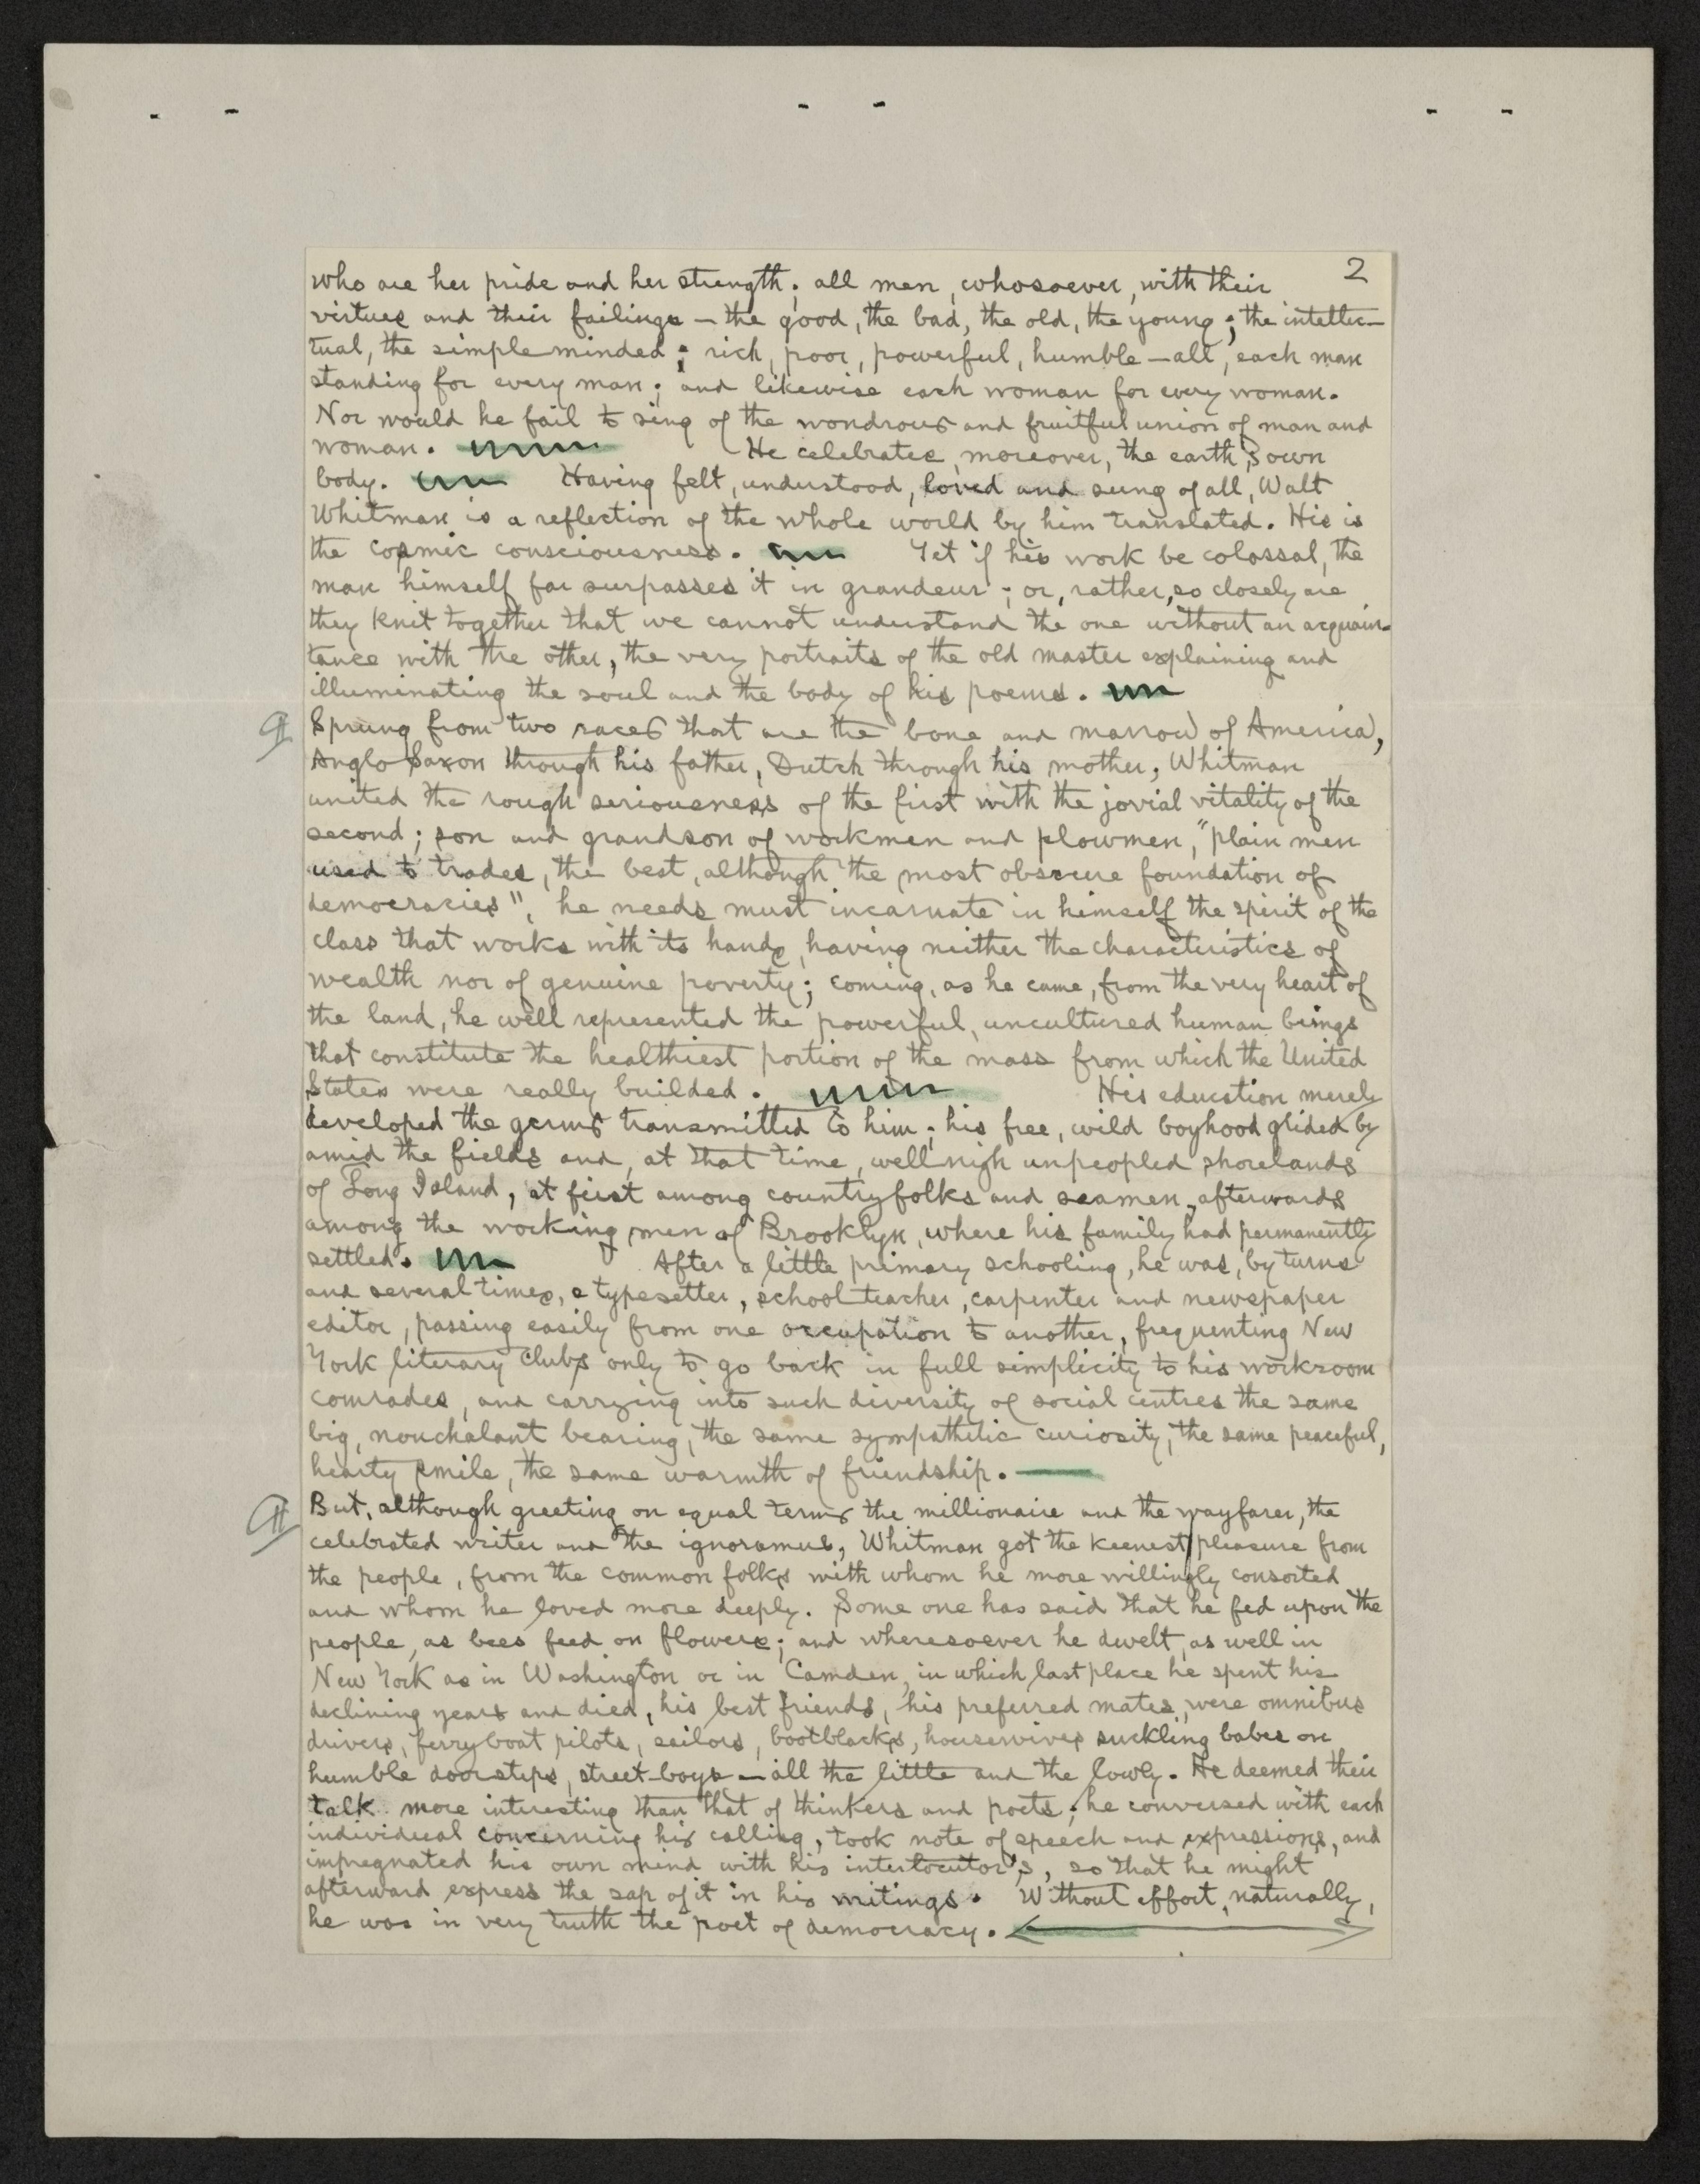 2
who are her pride and her strength; all men, whosoever, with their
virtues and their failings — the good, the bad, the old, the young; the intellec-
tual, the simpleminded; rich, poor, powerful, humble — all, each man
standing for every man; and likewise each woman for every woman.
Nor would he fail to sing of the wondrous and fruitful union of man and
woman. He celebrates, moreover, the earth's own
body. Having felt, understood, loved and sung of all, Walt
Whitman is a reflection of the whole world by him translated. His is
the cosmic consciousness. Yet if his work be colossal, the
man himself far surpasses it in grandeur; or, rather, so closely are
they knit together that we cannot understand the one without an acquain-
tance with the other, the very portraits of the old master explaining and
illuminating the soul and the body of his poems.
¶ Sprung from two races that are the bone and marrow of America,
Anglo Saxon through his father, Dutch through his mother, Whitman
united the rough seriousness of the first with the jovial vitality of the
second; son and grandson of workmen and plowmen, "plain men
used to trades, the best, although the most obscure foundation of
democracies", he needs must incarnate in himself the spirit of the
class that works with its hands, having neither the characteristics of
wealth nor of genuine poverty; coming, as he came, from the very heart of
the land, he well represented the powerful, uncultured human beings
that constitute the healthiest portion of the mass from which the United
States were really builded. His education merely
developed the germs transmitted to him; his free, wild boyhood glided by
amid the fields and, at that time, wellnigh unpeopled shorelands
of Long Island, at first among countryfolks and seamen, afterwards
among the working men of Brooklyn, where his family had permanently
settled. After a little primary schooling, he was, by turns
and several times, a typesetter, school teacher, carpenter and newspaper
editor, passing easily from one occupation to another, frequenting New
York literary clubs only to go back in full simplicity to his workroom
comrades, and carrying into such diversity of social centres the same
big, nonchalant bearing, the same sympathetic curiosity, the same peaceful,
hearty smile, the same warmth of friendship. —
¶ But, although greeting on equal terms the millionaire and the wayfarer, the
celebrated writer and the ignoramus, Whitman got the keenest pleasure from
the people, from the common folks with whom he more willingly consorted
and whom he loved more deeply. Some one has said that he fed upon the
people, as bees feed on flowers; and wheresoever he dwelt, as well in
New York as in Washington or in Camden, in which last place he spent his
declining years and died, his best friends, his preferred mates, were omnibus
drivers, ferryboat pilots, sailors, bootblacks, housewives suckling babes on
humble doorsteps, street-boys — all the little and the lowly. He deemed their
talk more interesting than that of thinkers and poets; he conversed with each
individual concerning his calling, took note of speech and expressions, and
impregnated his own mind with his interlocutor's, so that he might
afterward express the sap of it in his writings. Without effort, naturally,
he was in very truth the poet of democracy.